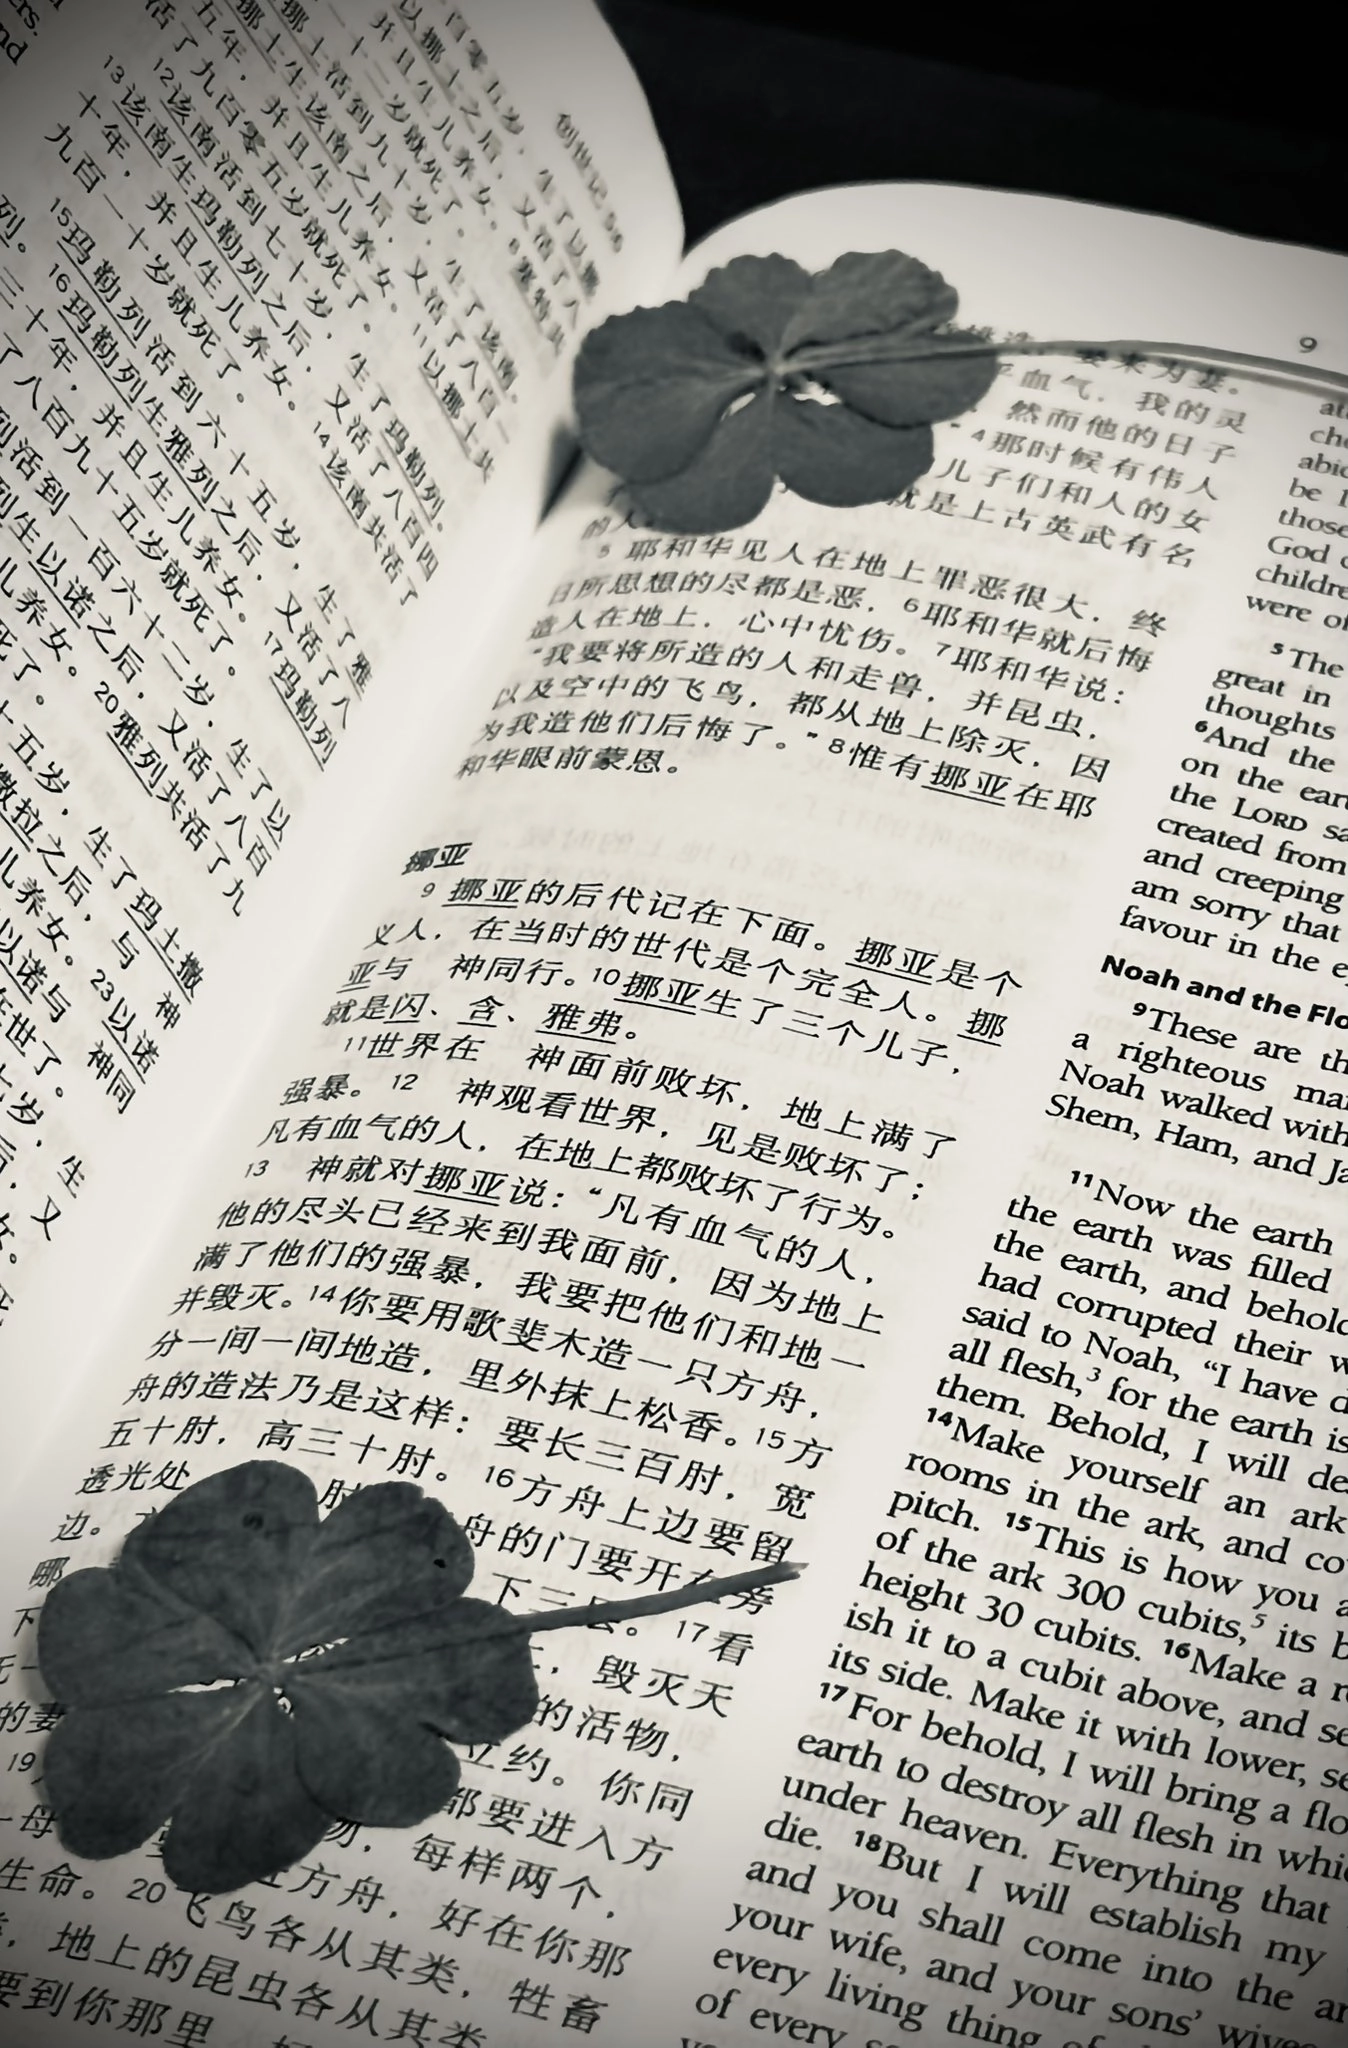 创世记 5:6
百零五岁，生了以挪
以挪士之后，又活了八
并且生儿养女。8 塞特共
一十二岁就死了。
挪士活到九十岁，生了该南。
挪士生该南之后，又活了八百一
五年，并且生儿养女。11 以挪士共
活了九百零五岁就死了。
12 该南活到七十岁，生了玛勒列。
13 该南生玛勒列之后，又活了八百四
十年，并且生儿养女。14 该南共活了
九百一十岁就死了。
15 玛勒列活到六十五岁，生了雅
列。16 玛勒列生雅列之后，又活了八
三十年，并且生儿养女。17 玛勒列
了八百九十五岁就死了。
列活到一百六十二岁，生了以
列生以诺之后，又活了八百
儿养女。20 雅列共活了九
死了。
十五岁，生了玛土撒
撒拉之后，与 神
儿养女。23 以诺
以诺与 神同
在世了。
七岁，生
后，又
女。
9
要来为妻。
血气，我的灵
然而他的日子
” 4 那时候有伟人
儿子们和人的女
就是上古英武有名
的人。
5 耶和华见人在地上罪恶很大，终
日所思想的尽都是恶，6 耶和华就后悔
造人在地上，心中忧伤。7 耶和华说：
“我要将所造的人和走兽，并昆虫，
以及空中的飞鸟，都从地上除灭，因
为我造他们后悔了。” 8 惟有挪亚在耶
和华眼前蒙恩。
挪亚
9 挪亚的后代记在下面。挪亚是个
义人，在当时的世代是个完全人。挪
亚与 神同行。10 挪亚生了三个儿子，
就是闪、含、雅弗。
11 世界在 神面前败坏，地上满了
强暴。12 神观看世界，见是败坏了；
凡有血气的人，在地上都败坏了行为。
13 神就对挪亚说：“凡有血气的人，
他的尽头已经来到我面前，因为地上
满了他们的强暴，我要把他们和地一
并毁灭。14 你要用歌斐木造一只方舟，
分一间一间地造，里外抹上松香。15 方
舟的造法乃是这样：要长三百肘，宽
五十肘，高三十肘。16 方舟上边要留
透光处 肘
边。 舟的门要开在旁
下三层。17 看
毁灭天
的活物，
的妻 立约。你同
19 都要进入方
一母 物，每样两个，
方舟，好在你那
生命。20 飞鸟各从其类，牲畜
，地上的昆虫各从其类
要到你那里，好
abid
be
those
God
childre
were of
5 The
great in
thoughts
6 And the
on the ear
the LORD sa
created from
and creeping
am sorry that
favour in the e
Noah and the Flo
9 These are th
a righteous ma
Noah walked with
Shem, Ham, and Ja
11 Now the earth
the earth was filled
the earth, and behold
had corrupted their w
said to Noah, “I have d
all flesh,3 for the earth is
them. Behold, I will de
14 Make yourself an ark
rooms in the ark, and co
pitch. 15 This is how you a
of the ark 300 cubits,5 its b
height 30 cubits. 16 Make a r
ish it to a cubit above, and se
its side. Make it with lower, se
17 For behold, I will bring a flo
earth to destroy all flesh in whi
under heaven. Everything that
die. 18 But I will establish my
and you shall come into the ar
your wife, and your sons’ wives
every living thing of
of every